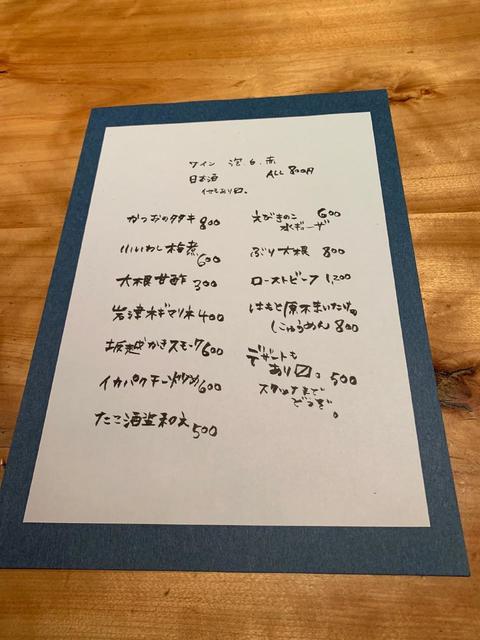 ワイン 泡 白 赤
日本酒 ALL 800円
かつおのタタキ 800
いわし梅煮 600
大根甘酢 300
岩津ネギマリネ 400
坂越かきスモーク 600
イカパクチー炒め 600
たこ酒盗和え 500
えびきのこ 600
水ギョーザ
ぶり大根 800
ローストビーフ 1,200
はもと原木まいたけの
にゅうめん 800
デザートも
あり〼。500
スタッフまで
どうぞ。